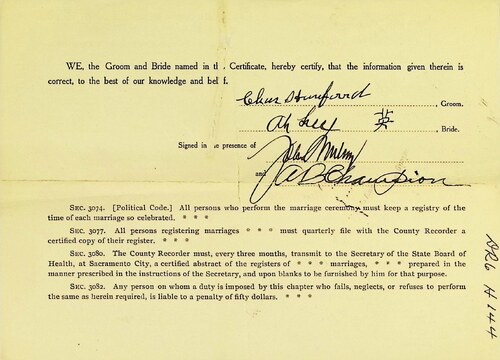 WE, the Groom and Bride named in th Certificate, hereby certify, that the information given therein is
correct, to the best of our knowledge and bel f.
Chas Hunford , Groom.
Ah 英 , Bride.
Signed in presence of
and A B Champion
SEC. 3074. [Political Code.] All persons who perform the marriage ceremony must keep a registry of the
time of each marriage so celebrated. * * *
SEC. 3077. All persons registering marriages * * * must quarterly file with the County Recorder
a certified copy of their register. * * *
SEC. 3080. The County Recorder must, every three months, transmit to the Secretary of the State Board of
Health, at Sacramento City, a certified abstract of the registers of * * * marriages, * * * prepared in the
manner prescribed in the instructions of the Secretary, and upon blanks to be furnished by him for that purpose.
SEC. 3082. Any person on whom a duty is imposed by this chapter who fails, neglects, or refuses to perform
the same as herein required, is liable to a penalty of fifty dollars. * * *
H 144